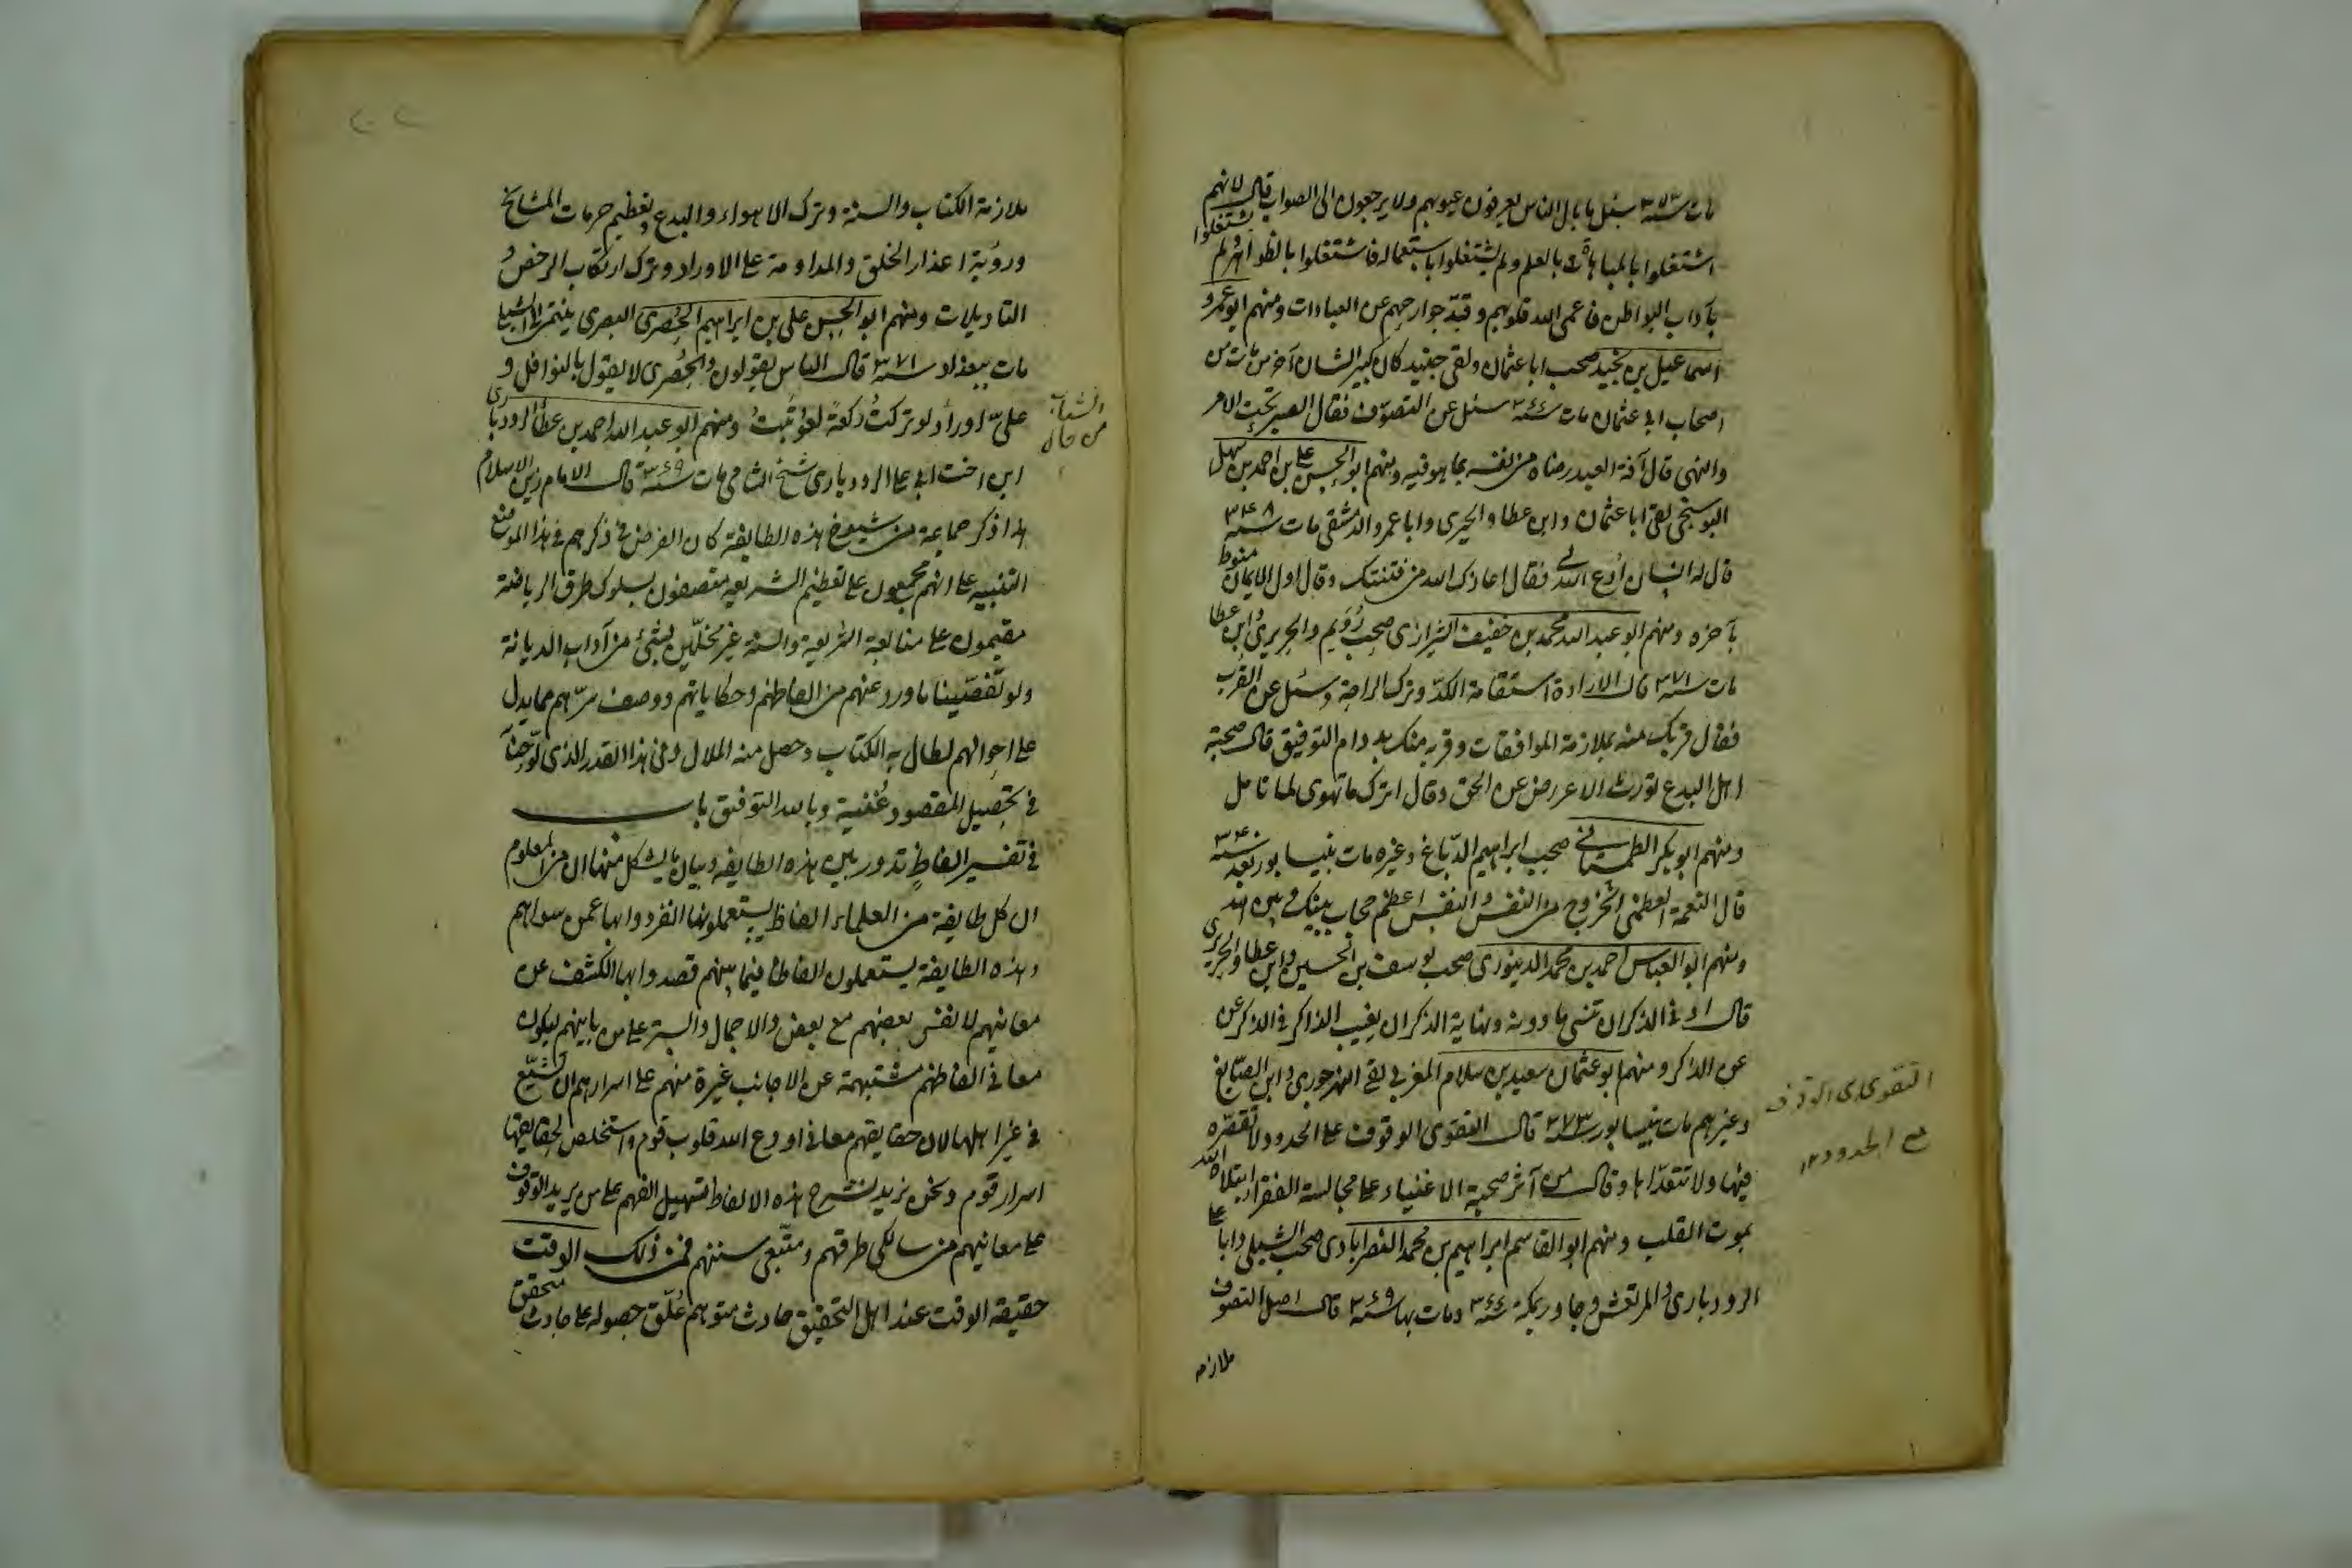 مات سنة ٣٥٣ سئل ما بال الناس يعرفون عيوبهم ولا يرجعون الى الصواب قال لانهم
اشتغلوا بالمباهات بالعلم ولم يشتغلوا باستعماله فاشتغلوا بالظواهر ولم يشتغلوا
بآداب البواطن فاعمى الله قلوبهم وقيد جوارحهم عن العبادات ومنهم ابو عمرو
اسماعيل بن نجيد صحب ابا عثمان ولقى جنيد كان كبير الشان آخر من مات من
اصحاب ابى عثمان مات سنة ٣٦٦ سئل عن التصوف فقال الصبر تحت الامر
والنهى قال آفة العبد رضاه من نفسه بما هو فيه ومنهم ابو الحسن على بن احمد بن سهل
البوسنجى لقى ابا عثمان وابن عطا والجريرى وابا عمرو الدمشقى مات سنة ٣٤٨
قال له انسان ادع الله لى فقال اعاذك الله من فتنتك وقال اول الايمان منوط
بآخره ومنهم ابو عبد الله محمد بن خفيف الشيرازى صحب رُوَيم والجريرى وابن عطا
مات سنة ٣٧١ قال الارادة استقامة الكدّ وترك الراحة وسئل عن القرب
فقال قربك منه بملازمة الموافقات وقربه منك بدوام التوفيق قال صحبة
اهل البدع تورث الاعراض عن الحق وقال اترك ما تهوى لما تامل
ومنهم ابو بكر الطمستانى صحب ابراهيم الدبّاغ وغيره مات بنيسابور بعد سنة ٣٤٠
قال النعمة العظمى الخروج من النفس والنفس اعظم حجاب بينك وبين الله
ومنهم ابو العباس احمد بن محمد الدينورى صحب يوسف بن الحسين وابن عطا والجريرى
قال ادنى الذكر ان تنسى ما دونه ونهاية الذكر ان يغيب الذاكر فى الذكر عن
عن الذاكر ومنهم ابو عثمان سعيد بن سلام المغربى لقى النهرجورى وابن الصايغ
وغيرهم مات بنيسابور سنة ٣٧٣ قال التقوى الوقوف على الحدود لا تقصّره
فيها ولا تتعدّاها وقال من آثر صحبة الاغنياء على مجالسة الفقراء ابتلاه الله
بموت القلب ومنهم ابو القاسم ابراهيم بن محمد النصرابادى صحب الشبلى وابا على
الرودبارى والمرتعش وجاور بمكة سنة ٣٦٦ ومات بها سنة ٣٦٩ قال اصل التصوف
ملازمه
التقوى هى الوقوف
مع الحدود ١٢
ملازمة الكتاب والسنة وترك الاهواء والبدع وتعظيم حرمات المشايخ
ورؤية اعذار الخلق والمداومة على الاوراد وترك ارتكاب الرخص و
التاويلات ومنهم ابو الحسن على بن ابراهيم الحُصرى البصرى ينتمى الى الشبلى
مات ببغداد سنة ٣٧١ قال الناس يقولون الحُصرى لا يقول بالنوافل و
علىّ اوراد لو تركتُ ركعة لعوتبتُ ومنهم ابو عبد الله احمد بن عطا الرودبارى
ابن اخت ابى على الرودبارى شيخ الشام مات سنة ٣٦٩ قال الامام زين الاسلام
هذا ذكر جماعة من شيوخ هذه الطايفة كان الغرض فى ذكرهم فى هذا الموضع
التنبيه على انهم مجمعون على تعظيم الشريعه متصفون بسلوك طرق الرياضة
مقيمون على متابعة الشريعة والسنة غير مخلّين بشئ من آداب الديانة
ولو تقصّينا ما ورد عنهم من الفاظهم وحكاياتهم ووصف سرّهم مما يدل
على احوالهم لطال به الكتاب وحصل منه الملال وفى هذا القدر الذى لوّحنا
فى تحصيل المقصود غُنية وبالله التوفيق باب
فى تفسير الفاظٍ تدور بين هذه الطايفه وبيان ما يشكل منها ان من المعلوم
ان كل طايفة من العلماء الفاظ يستعملونها انفردوا بها عمن سواهم
وهذه الطايفة يستعملون الفاظا فيما بينهم قصدوا بها الكشف عن
معانيهم لانفس بعضهم مع بعض والاجمال والستر على من باينهم ليكون
معانى الفاظهم مشتبهة عن الاجانب غيرة منهم على اسرارهم ان تشيع
فى غير اهلها لان حقايقهم معانى اودع الله قلوب قوم واستخلص لحقايقها
اسرار قوم ونحن نريد نشرح هذه الالفاظ تسهيل الفهم على من يريد الوقوف
على معانيهم من سالكى طرقهم ومتّبعى سننهم فمن ذلك الوقت
حقيقة الوقت عند اهل التحقيق حادث متوهم عُلّق حصوله على حادث متحقق